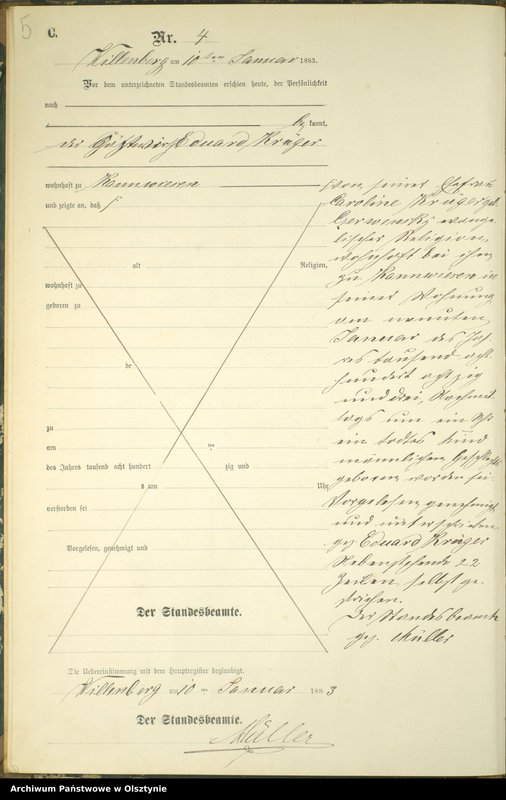 5
C.
Nr. 4
Willenberg am 10ten Januar 1883.
Vor dem unterzeichneten Standesbeamten erschien heute, der Persönlichkeit
nach
be kannt,
der Gastwirth Eduard Krüger
wohnhaft zu Kannwiesen
und zeigte an, daß
von seiner Ehefrau
Caroline Krüger geb.
evange-
lischer Religion,
wohnhaft bei ihm
zu Kannwiesen in
seiner Wohnung
am neunten
Januar des Jah-
res tausend acht-
hundert achtzig
und drei, Nachmit-
tags um ein Uhr
ein todtes Kind
männlichen Geschlechts
geboren worden sei.
Vorgelesen, genehmigt
und unterschrieben
gez Eduard Krüger
Nebenstehende 22
Zeilen selbst ge-
strichen.
Der Standesbeamte
gez. Müller
alt Religion,
wohnhaft zu
geboren zu
de
zu
am ten
des Jahres tausend acht hundert zig und
um Uhr
verstorben sei
Vorgelesen, genehmigt und
Der Standesbeamte.
Die Uebereinstimmung mit dem Hauptregister beglaubigt.
Willenberg am 10ten Januar 1883
Der Standesbeamte.
Müller
Archiwum Państwowe w Olsztynie